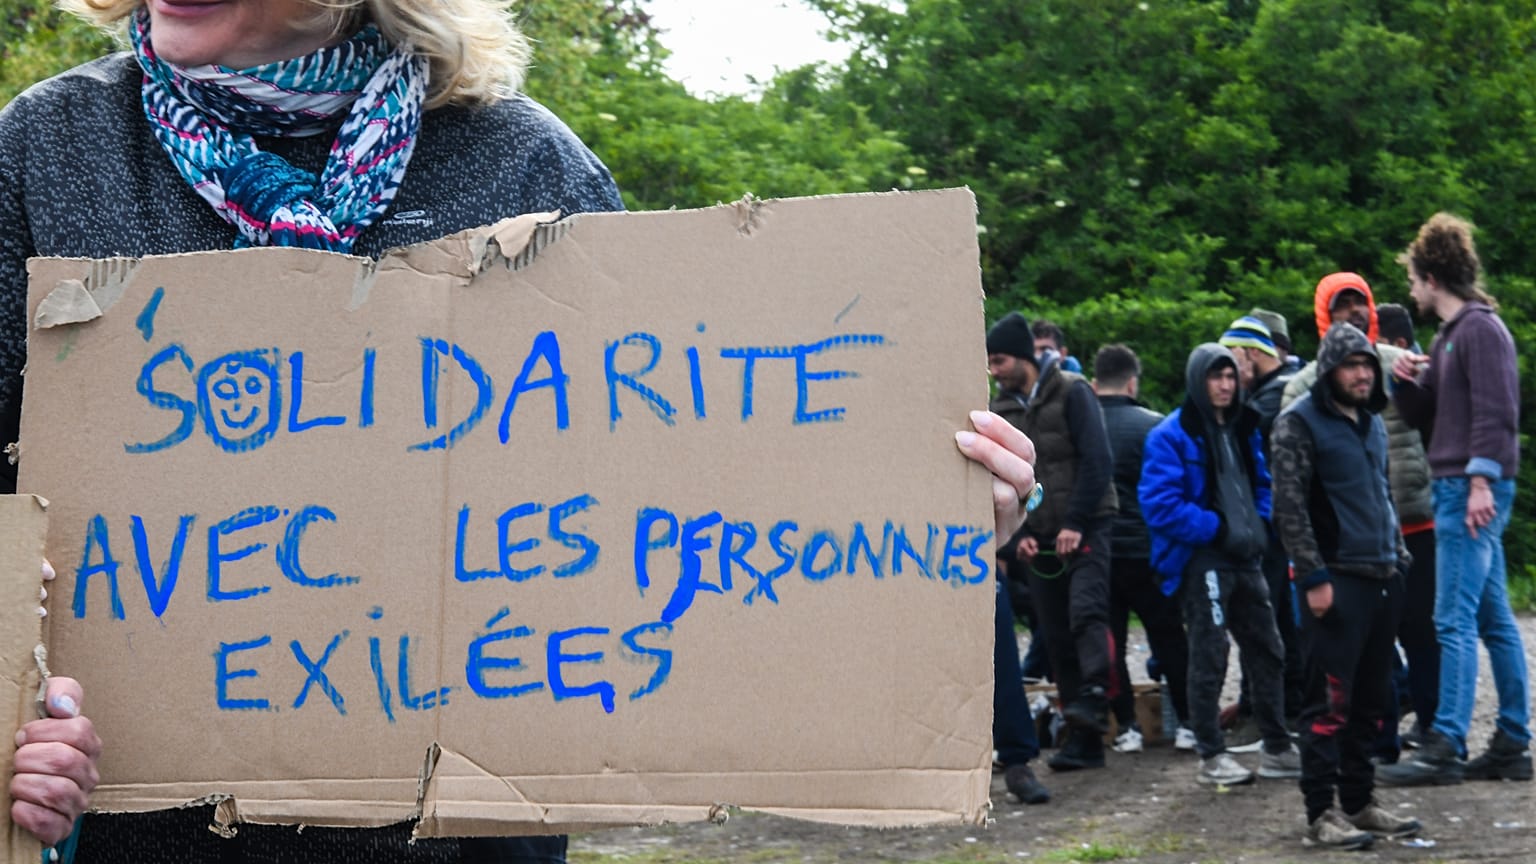 SOLIDARITÉ
AVEC LES PERSONNES
EXILÉES